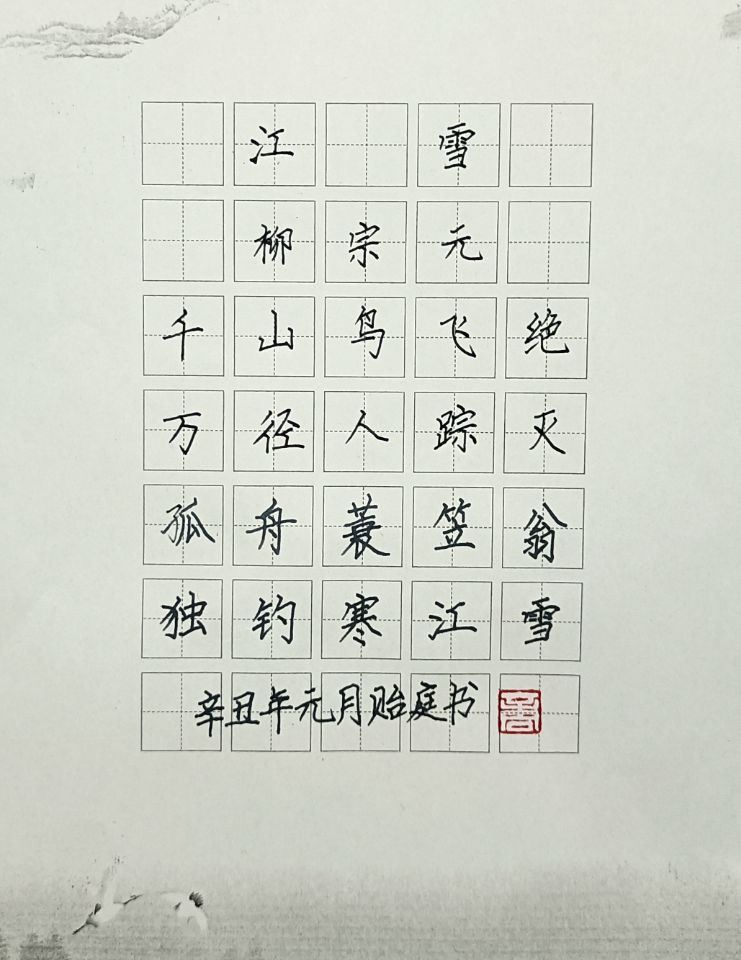 江雪
柳宗元
千山鸟飞绝
万径人踪灭
孤舟蓑笠翁
独钓寒江雪
辛丑年元月贻庭书